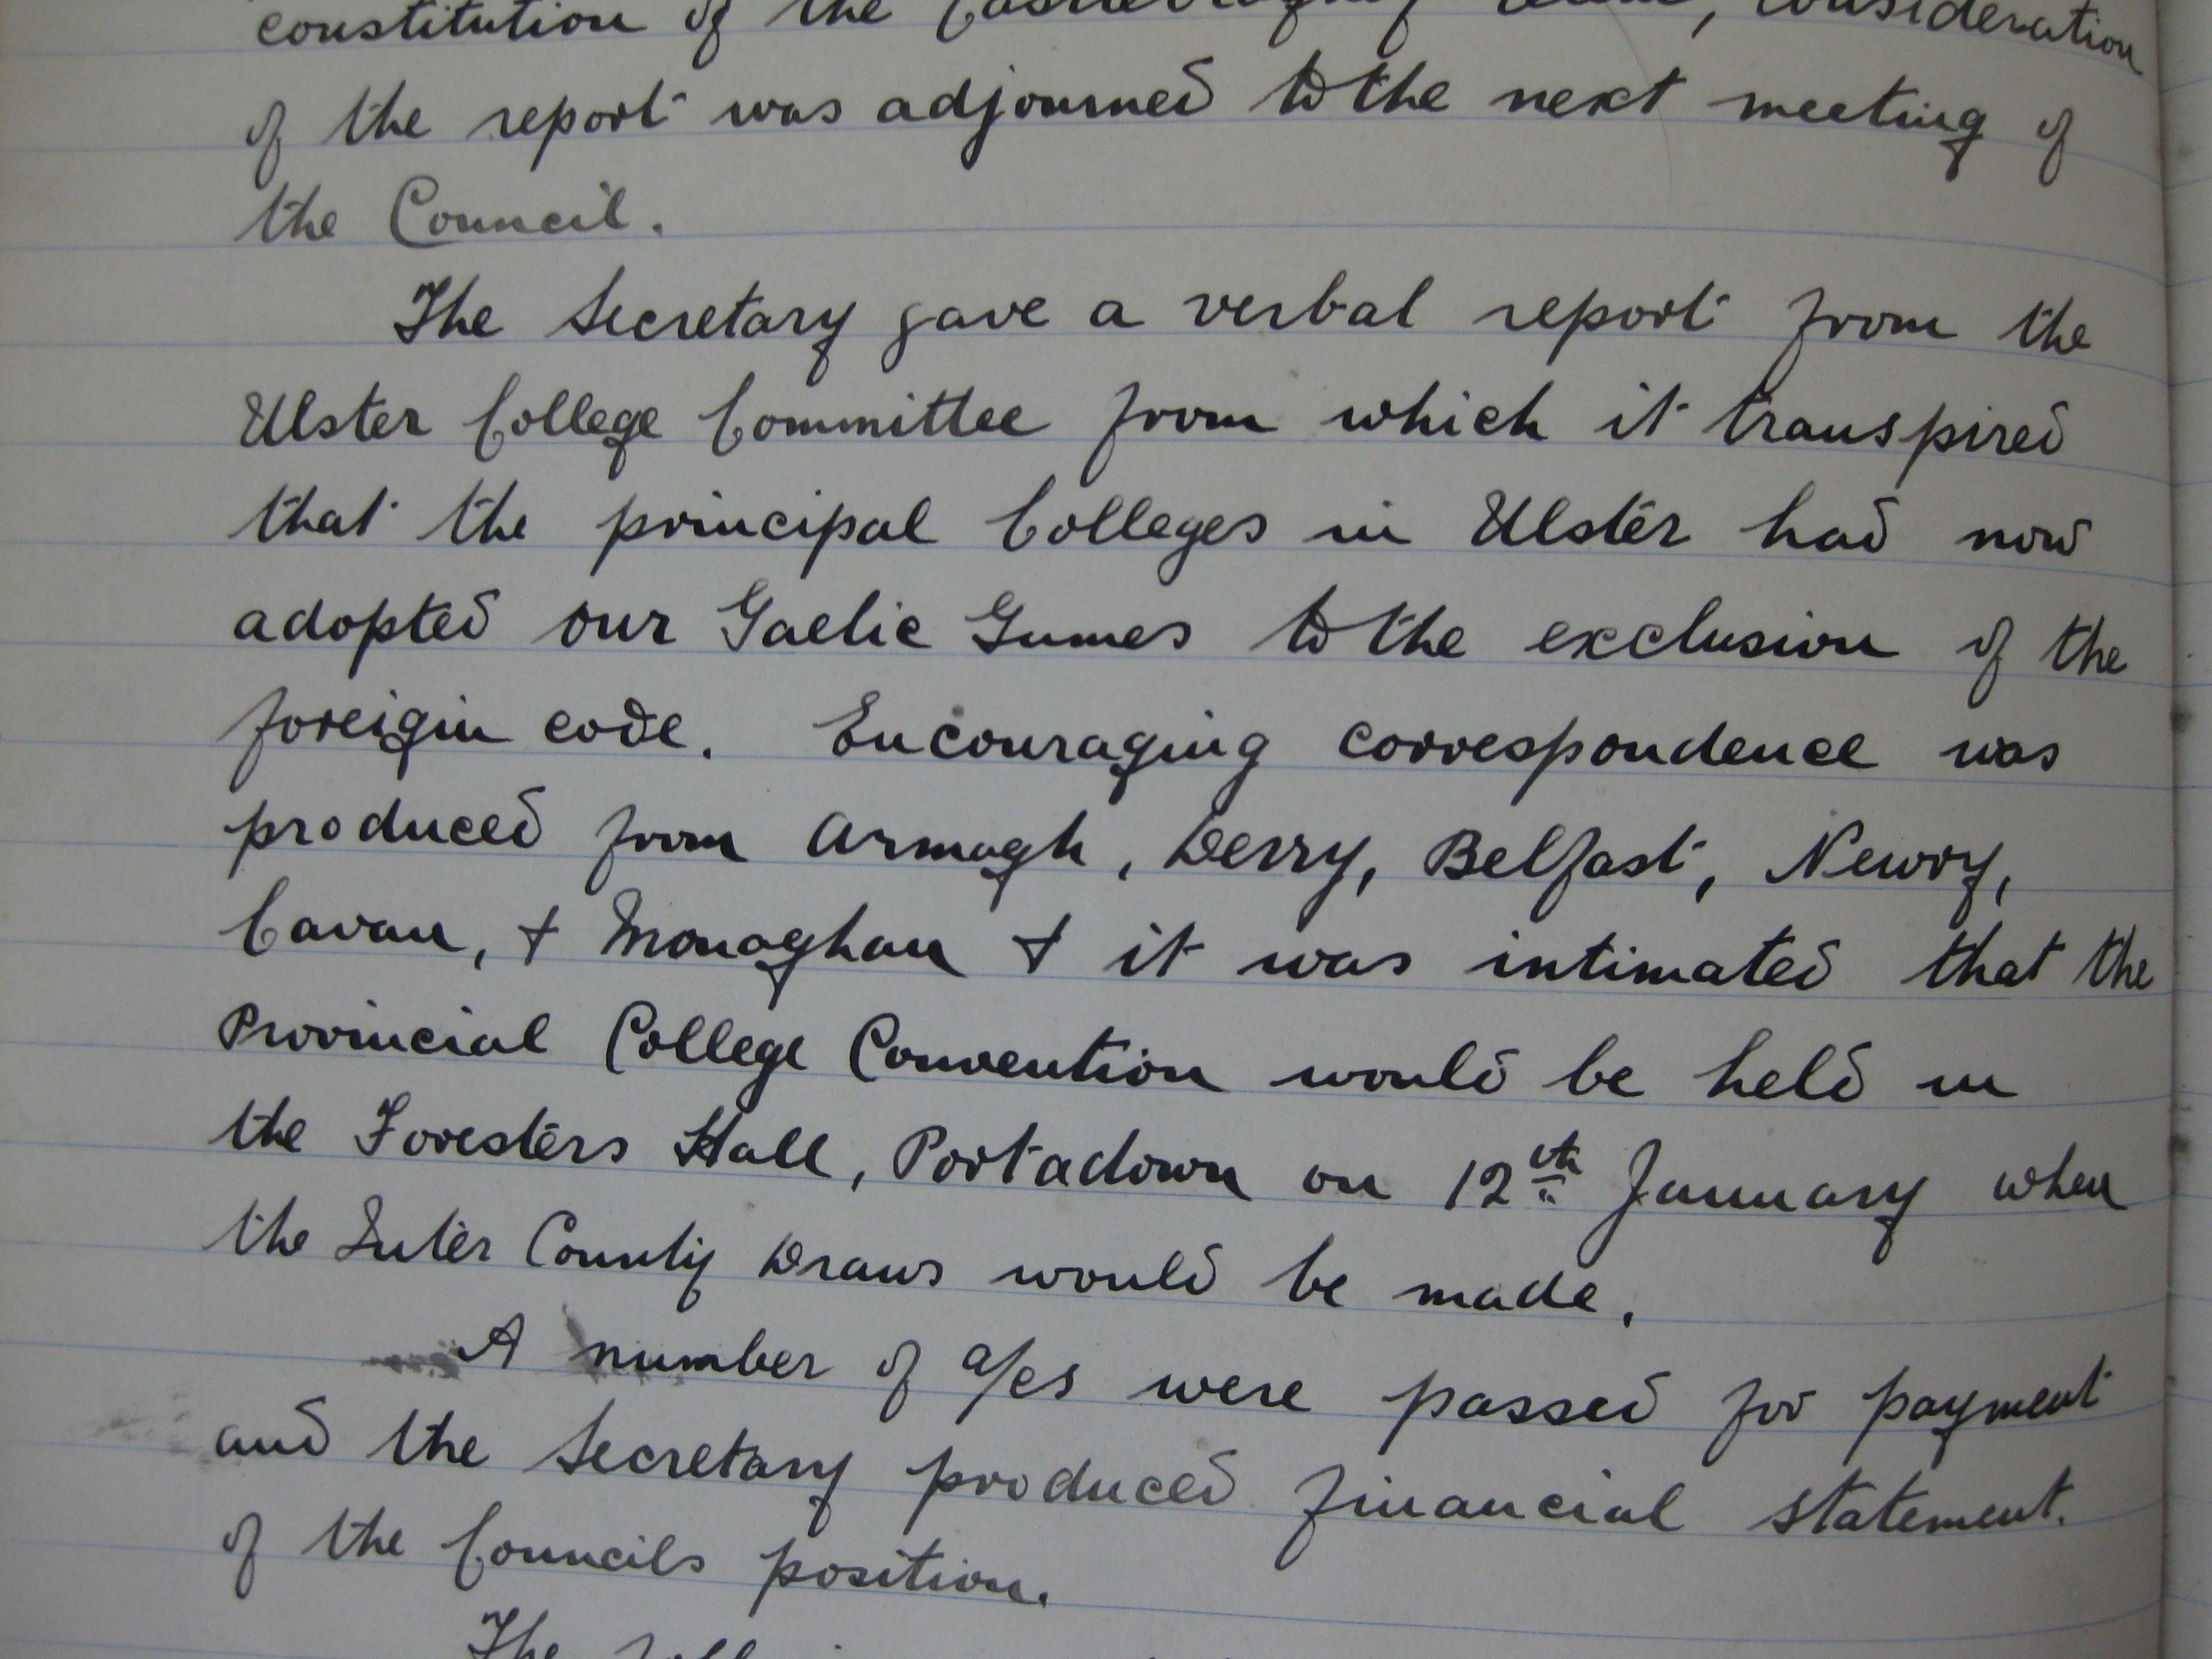 constitution of the Castleblayney team, consideration
of the report was adjourned to the next meeting of
the Council.
The Secretary gave a verbal report from the
Ulster College Committee from which it transpired
that the principal Colleges in Ulster had now
adopted our Gaelic Games to the exclusion of the
foreign code. Encouraging correspondence was
produced from Armagh, Derry, Belfast, Newry,
Cavan, & Monaghan & it was intimated that the
Provincial College Convention would be held in
the Foresters Hall, Portadown on 12th January when
the Inter County Draws would be made.
A number of a/cs were passed for payment
and the Secretary produced financial statement.
of the Councils position.
The